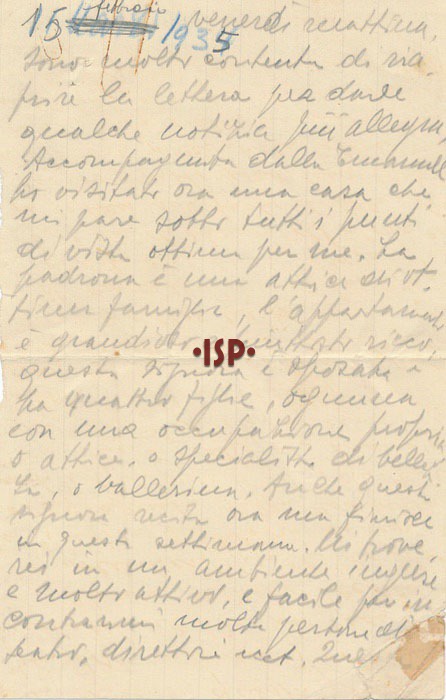 15 febbraio 1935 venerdì mattina,
sono molto contenta di ria
prire la lettera per darle
qualche notizia più allegra,
Accompagnata dalla Emanuel
ho visitato ora una casa che
mi pare sotto tutti i punti
di vista ottima per me. La
padrona è una attrice di ot
tima famiglia, l'appartamento
è grandioso, piuttosto ricco,
•ISP•
questa signora è sposata e
ha quattro figlie, ognuna
con una occupazione propria
o attrice, o specialista di bellez
za, o ballerina. Anche questa
signora recita ora ma finisce
in questa settimana. Mi trove
rei in un ambiente inglese
e molto attivo, e facile per in
contrarmi molte persone di
teatro, direttore ect. Questa